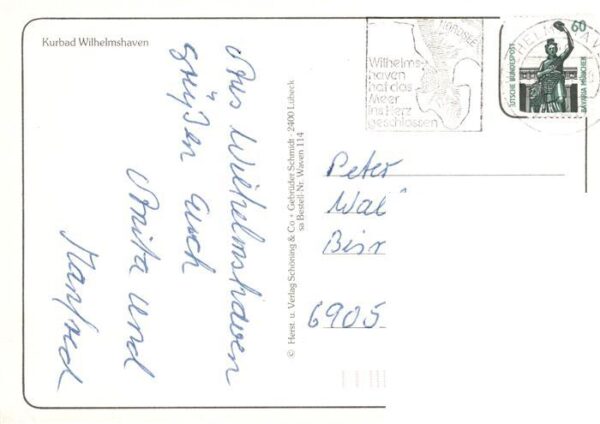 Kurbad Wilhelmshaven
Aus Wilhelmshaven
grüßen Euch
Anita und
Manfred
© Herst. u. Verlag Schöning & Co + Gebrüder Schmidt · 2400 Lübeck
sa Bestell-Nr. Waven 114
NORDSEE
Wilhelms-
haven
hat das
Meer
ins Herz
geschlossen
60
DEUTSCHE BUNDESPOST
BAVARIA MÜNCHEN
Peter
Wal
6905